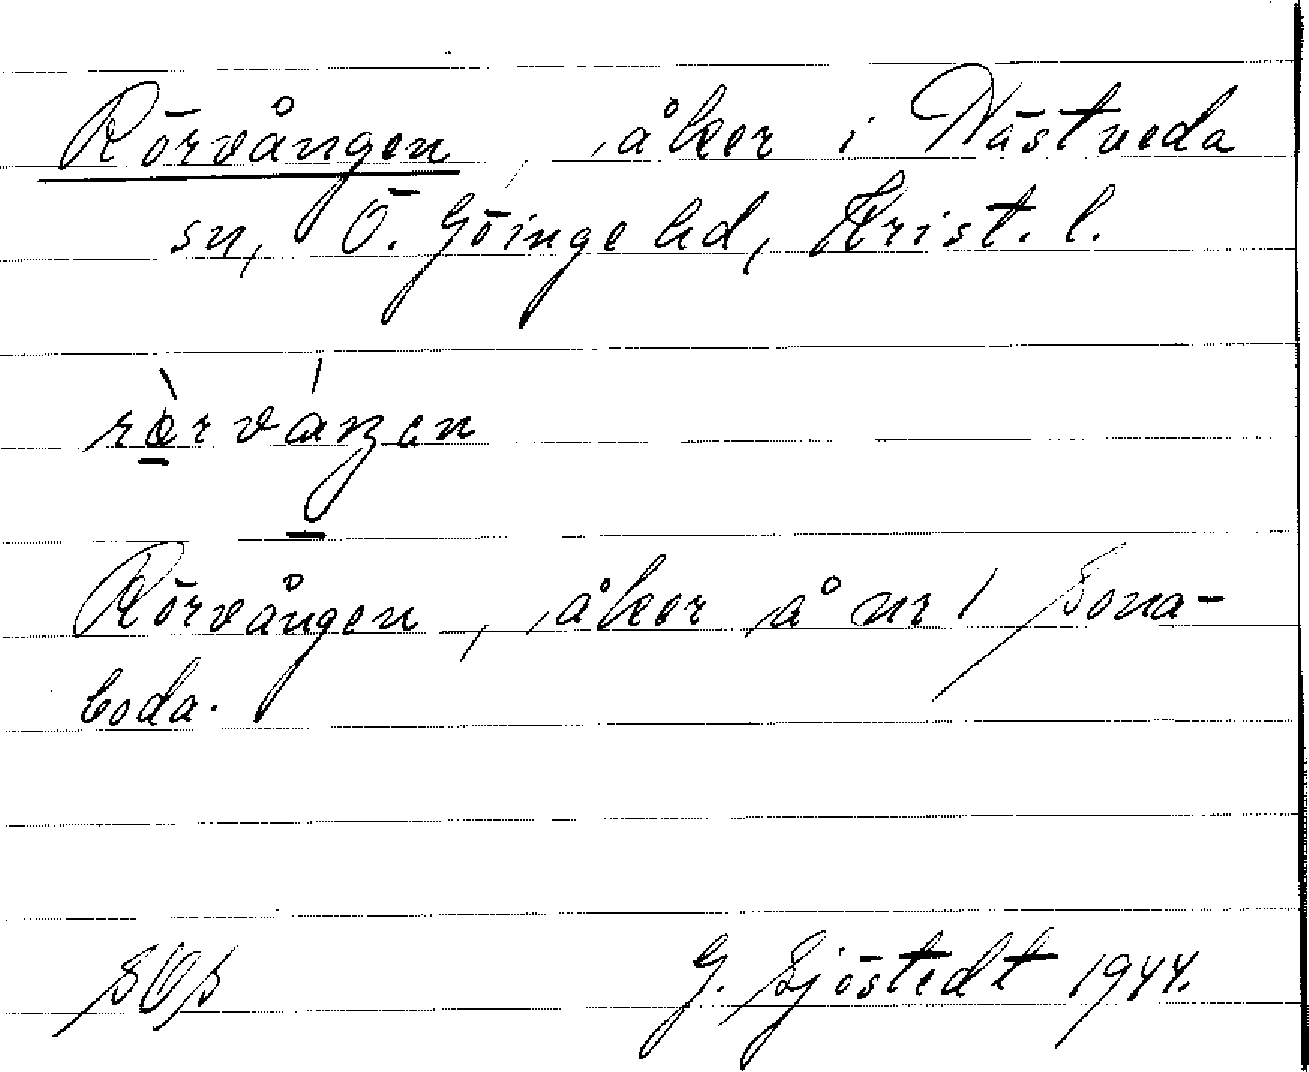 Rörvången, åker i Västveda
sn, Ö. Göinge hd, Krist. l.
Rörvången, åker å nr 1 Sona-
boda.
G. Sjöstedt 1944.